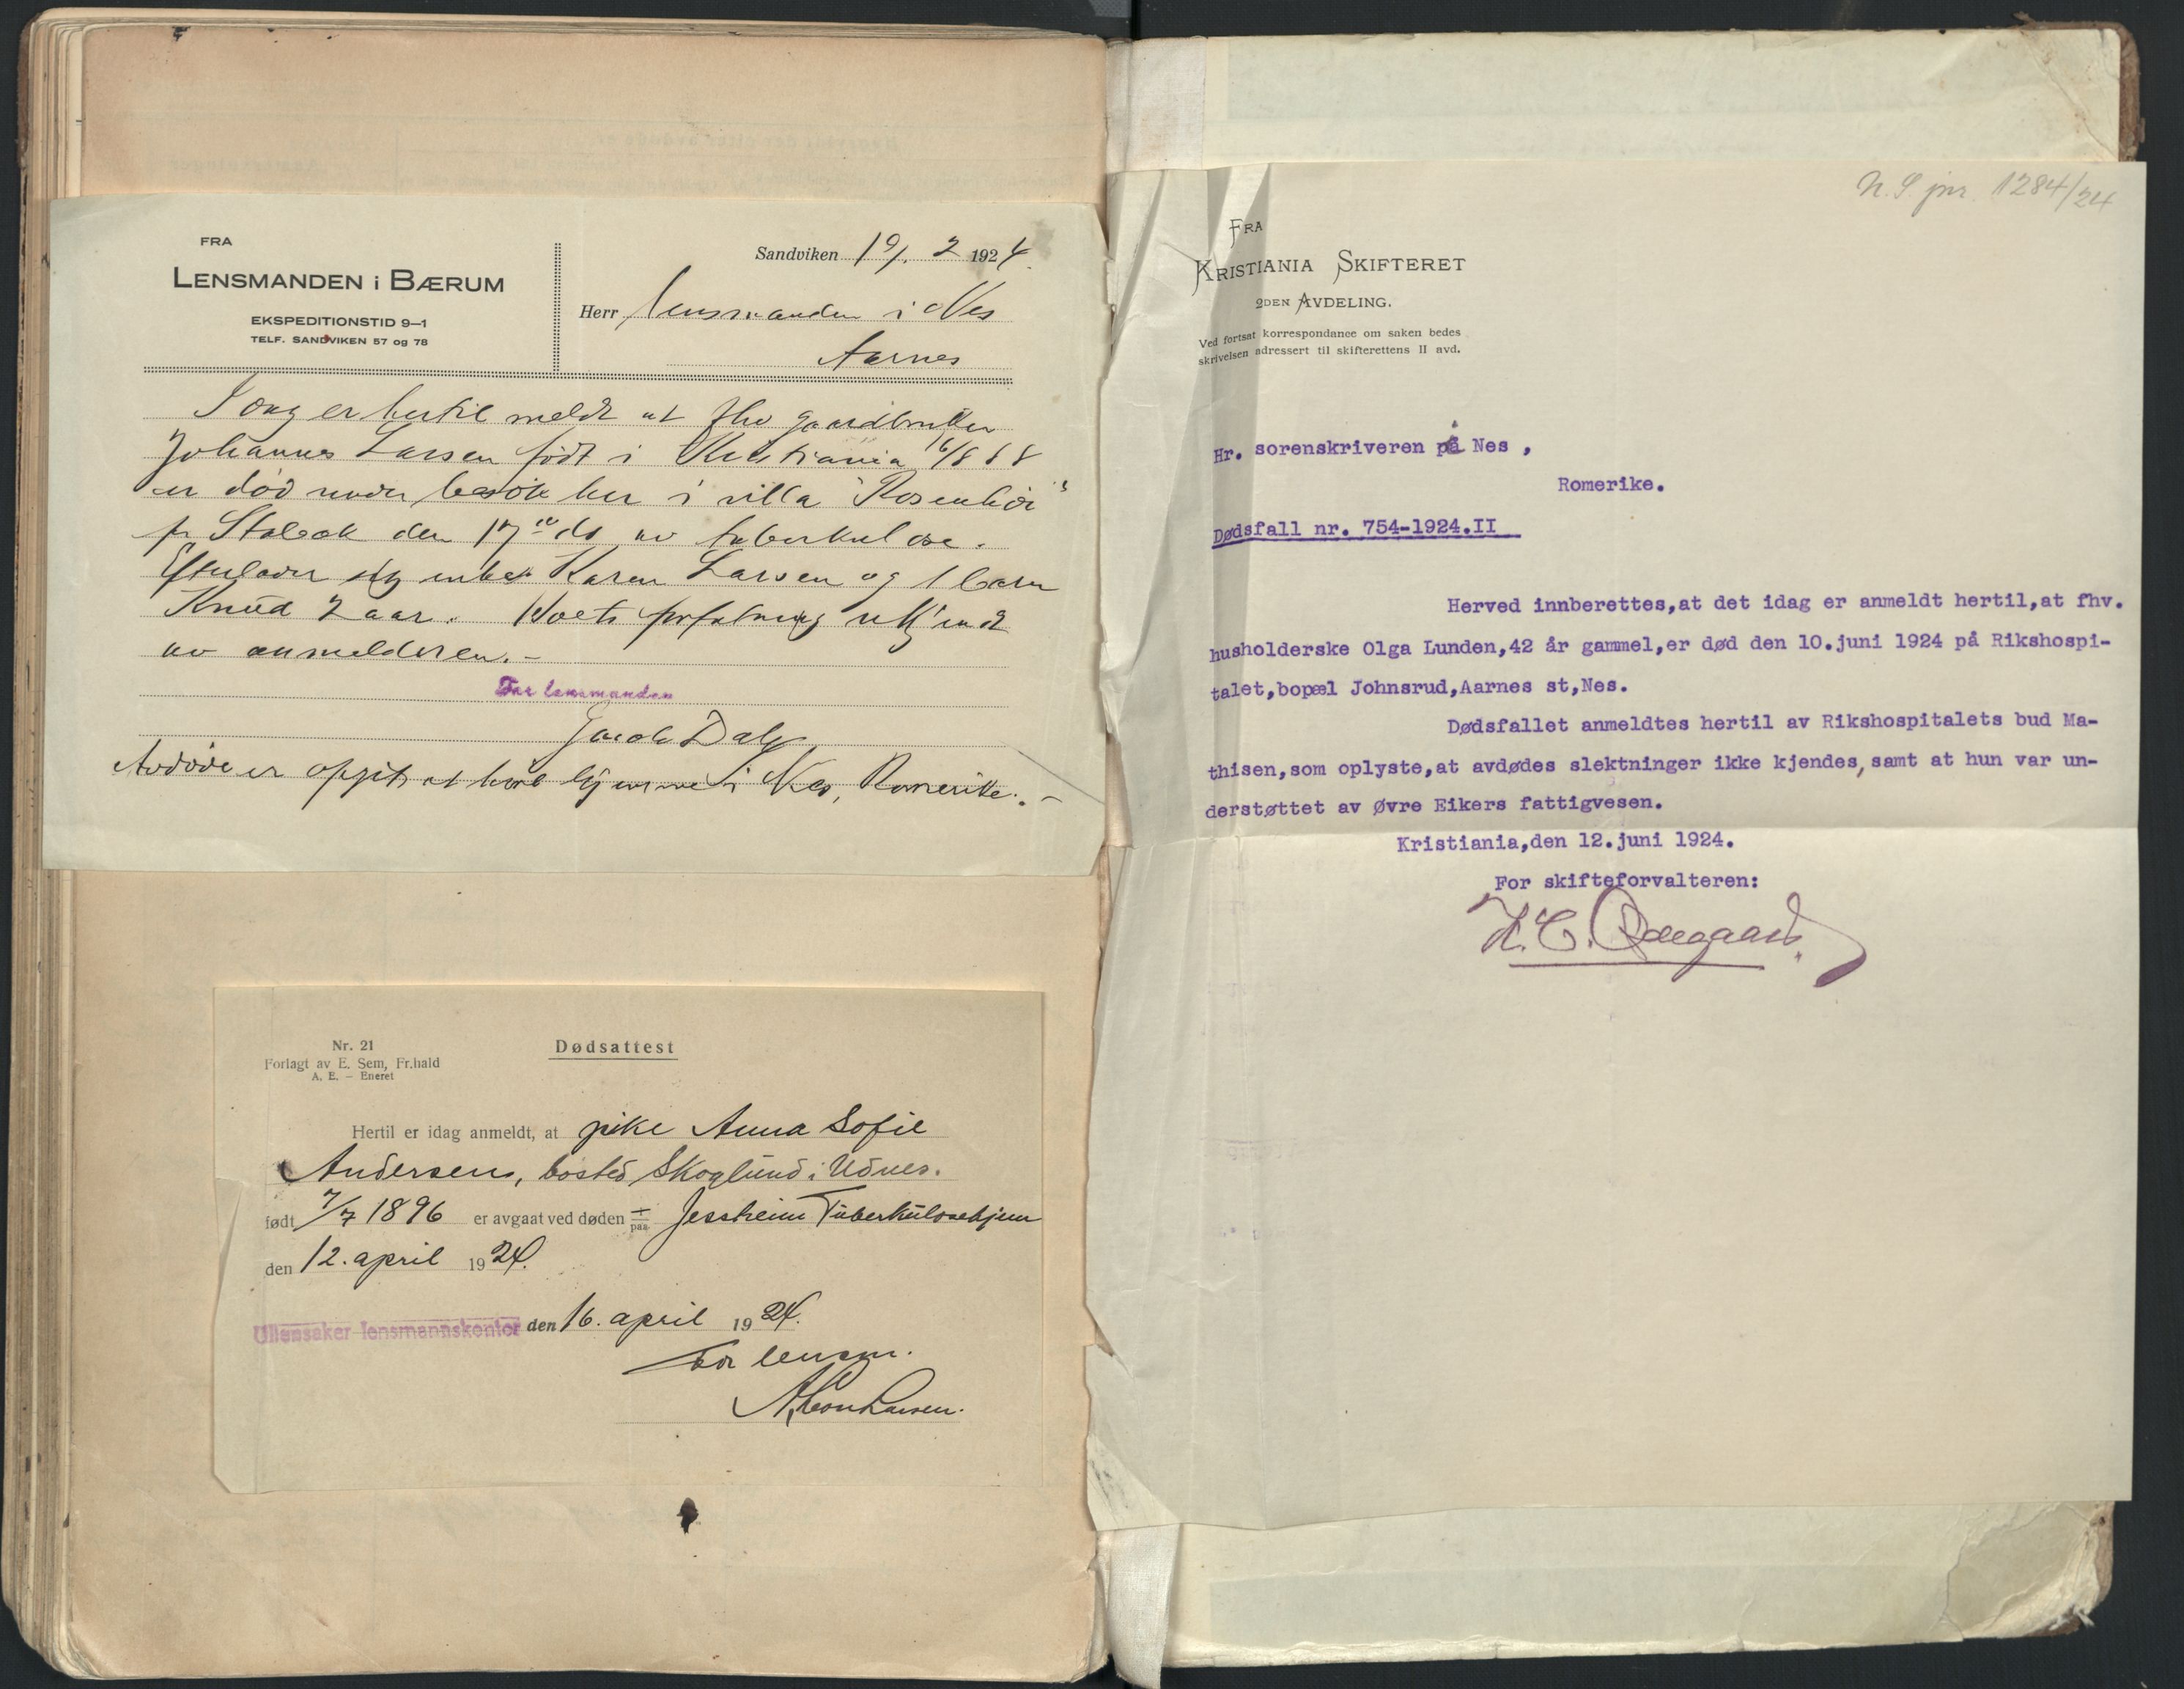 FRA
LENSMANDEN i BÆRUM
EKSPEDITIONSTID 9–1
TELF. SANDVIKEN 57 og 78
Sandviken 19/2 1924.
Herr lensmanden i Nes
Aarnes
I dag er hertil meldt at fhv gaardbruker
Johannes Larsen født i Kristiania 16/8 68
er død under besøk her i villa "Rosenlier"
pr Stabæk den 17de ds av tuberkulose.
Efterlader sig enke Karen Larsen og 1 barn
Knud 2 aar. Boets forfatning ukjendt
av anmelderen. –
For lensmanden
Jacob Dahl
Avdøde er opgit at høre hjemme i Nes, Romerike. –
Nr. 21
Forlagt av E. Sem, Fr.hald
A. E. – Eneret
Dødsattest
Hertil er idag anmeldt, at pike Anna Sofie
Andersen, bosted Skoglund i Udnes.
født 7/7 1896 er avgaat ved døden i/paa Jessheim Tuberkulosehjem
den 12. april 1924.
Ullensaker lensmannskontor den 16. april 1924.
For lensm.
N. S. jnr. 1284/24
FRA
KRISTIANIA SKIFTERET
2DEN AVDELING.
Ved fortsat korrespondance om saken bedes
skrivelsen adressert til skifterettens II avd.
Hr. sorenskriveren på Nes ,
Romerike.
Dødsfall nr. 754-1924.II
Herved innberettes,at det idag er anmeldt hertil,at fhv.
husholderske Olga Lunden,42 år gammel,er død den 10.juni 1924 på Rikshospi-
talet,bopæl Johnsrud,Aarnes st,Nes.
Dødsfallet anmeldtes hertil av Rikshospitalets bud Ma-
thisen,som oplyste,at avdødes slektninger ikke kjendes, samt at hun var un-
derstøttet av Øvre Eikers fattigvesen.
Kristiania,den 12.juni 1924.
For skifteforvalteren:
H. C. Odegaard.